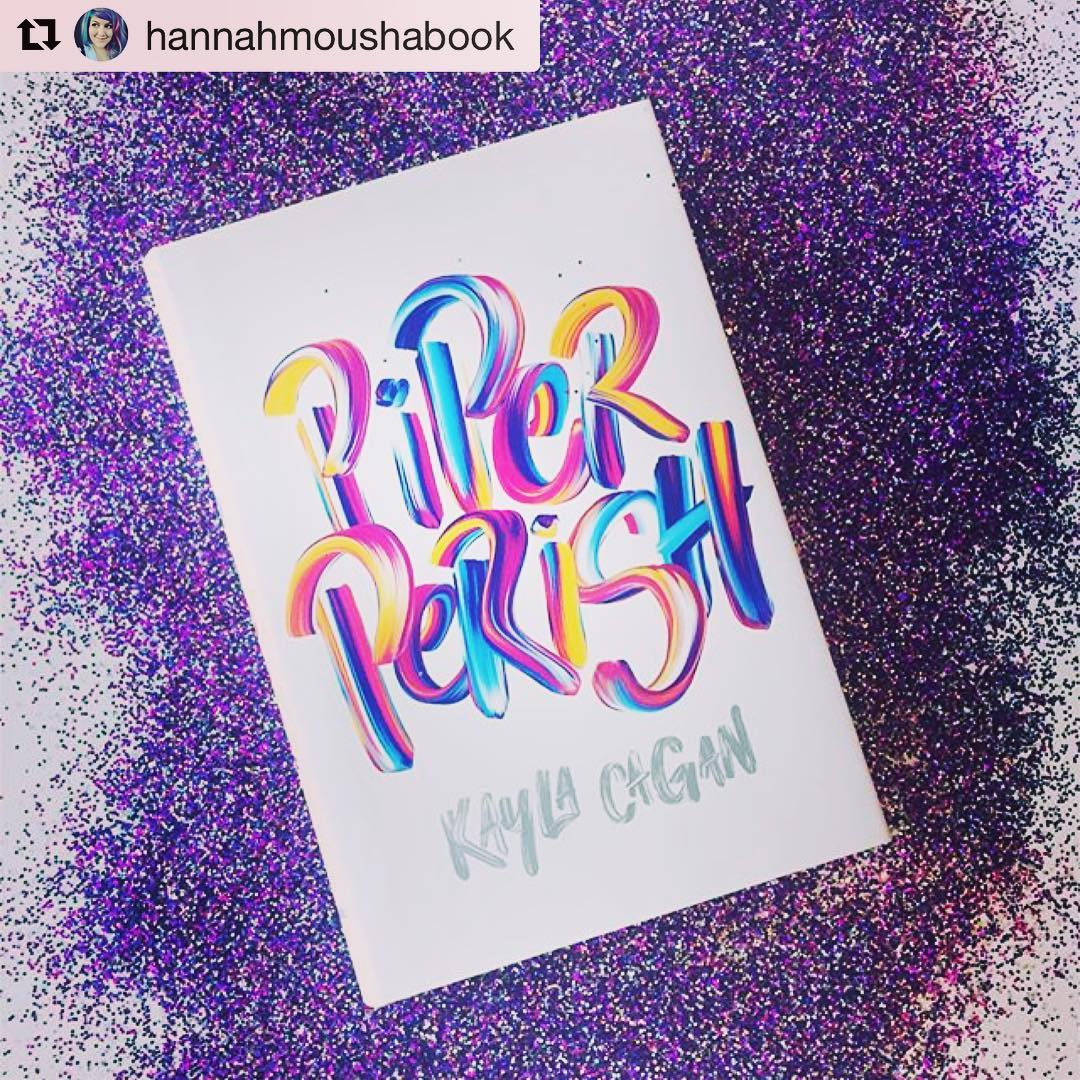 hannahmoushabook
PiPeR
PeRiSH
KAYLA CAGAN